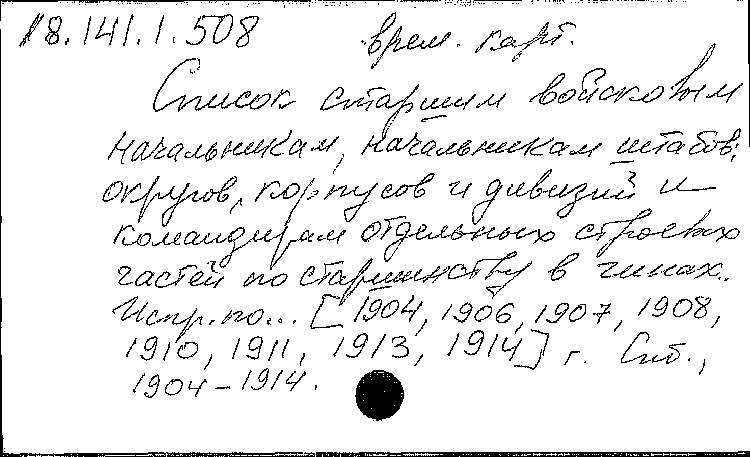 18.141.1.508 врем. карт.
Список старшим войсковым
начальникам, начальникам штабов:
округов, корпусов и дивизий и
командирам отдельных строевых
частей по старшинству в чинах.
Испр. по... [1904, 1906, 1907, 1908,
1910, 1911, 1913, 1914] г. Спб.,
1904-1914.